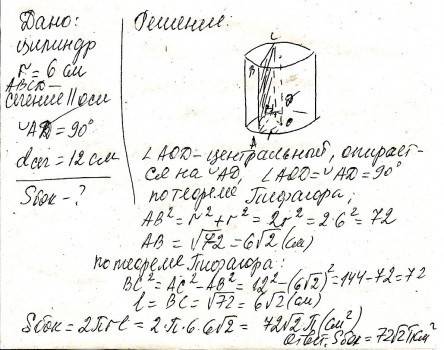 Дано:
цилиндр
r = 6 см
ABCD –
сечение || оси
◡AD = 90°
dсеч = 12 см
Sбок - ?
Решение:
C
B
D
O
A
∠AOD – центральный, опирает-
ся на ◡AD, ∠AOD = ◡AD = 90°
по теореме Пифагора:
AB² = r² + r² = 2r² = 2·6² = 72
AB = √72 = 6√2 (см)
по теореме Пифагора:
BC² = AC² - AB² = 12² - (6√2)² = 144 - 72 = 72
l = BC = √72 = 6√2 (см)
Sбок = 2πrl = 2·π·6·6√2 = 72√2 π (см²)
Ответ: Sбок = 72√2 π см²